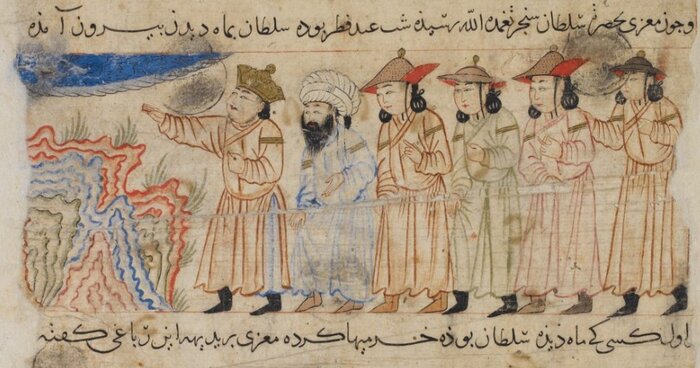 و چون معزی بحضرت سلطان سنجر تغمده الله رسیذه شب عید فطر بوده سلطان بماه دیدن بیرون آمذه
اول کسی کی ماه دیذه سلطان بوذه خرمیها کرده معزی بربدیهه این رباعی گفته